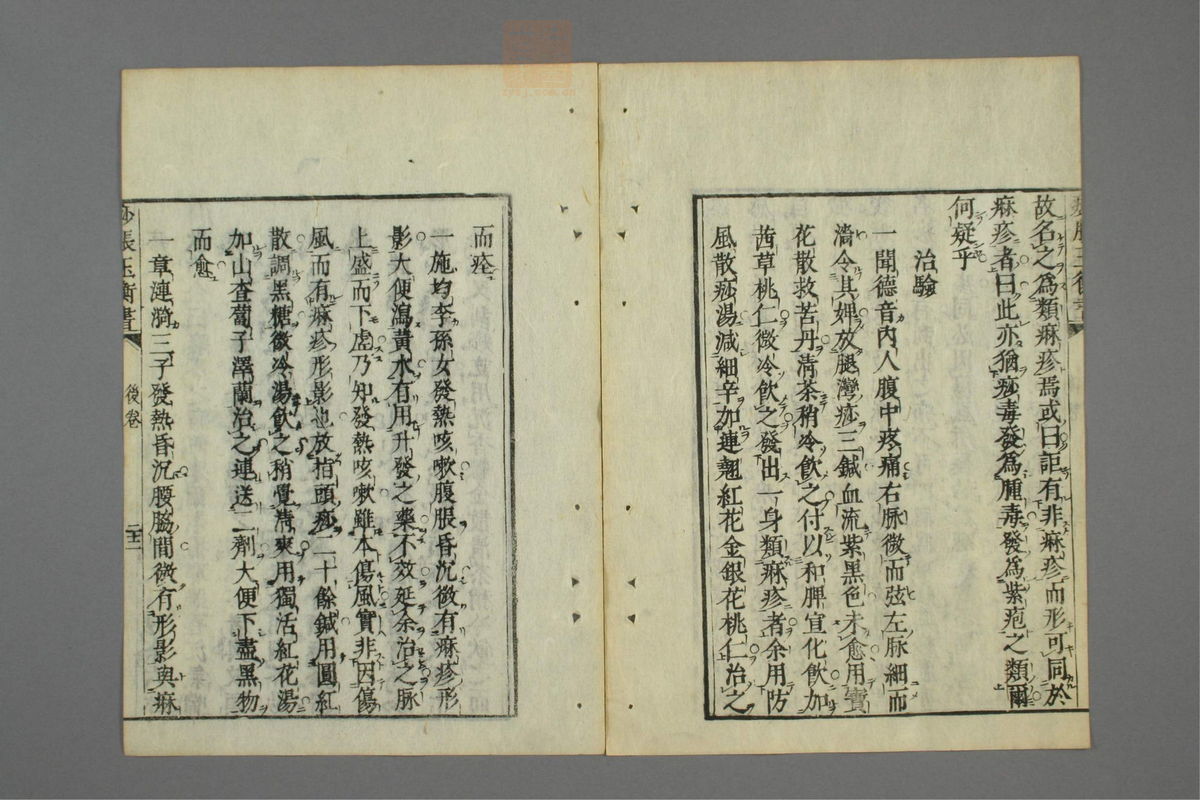 故名之爲類麻疹焉或曰詎有非麻疹而形可同於
麻疹者曰此亦猶痧毒發爲腫毒發爲紫疱之類爾
何疑乎
治驗
一聞德音內人腹中疼痛右脉微而弦左脉細而
濇令其婢放腿灣痧三鍼血流紫黑色未愈用寶
花散救苦丹清茶稍冷飲之付以和脾宣化飲加
茜草桃仁微冷飲之發出一身類麻疹者余用防
風散痧湯減細辛加連翹紅花金銀花桃仁治之
而痊
一施均李孫女發熱咳嗽腹脹昏沉微有麻疹形
影大便瀉黃水有用升發之藥不效延余治之脉
上盛而下虛乃知發熱咳嗽雖本傷風實非因傷
風而有麻疹形影也放指頭痧二十餘鍼用圓紅
散調黑糖微冷湯飲之稍覺清爽用獨活紅花湯
加山查蔔子澤蘭治之連送二劑大便下盡黑物
而愈
一章漣漪三子發熱昏沉腰脇間微有形影與麻
痧脹玉衡書
後卷